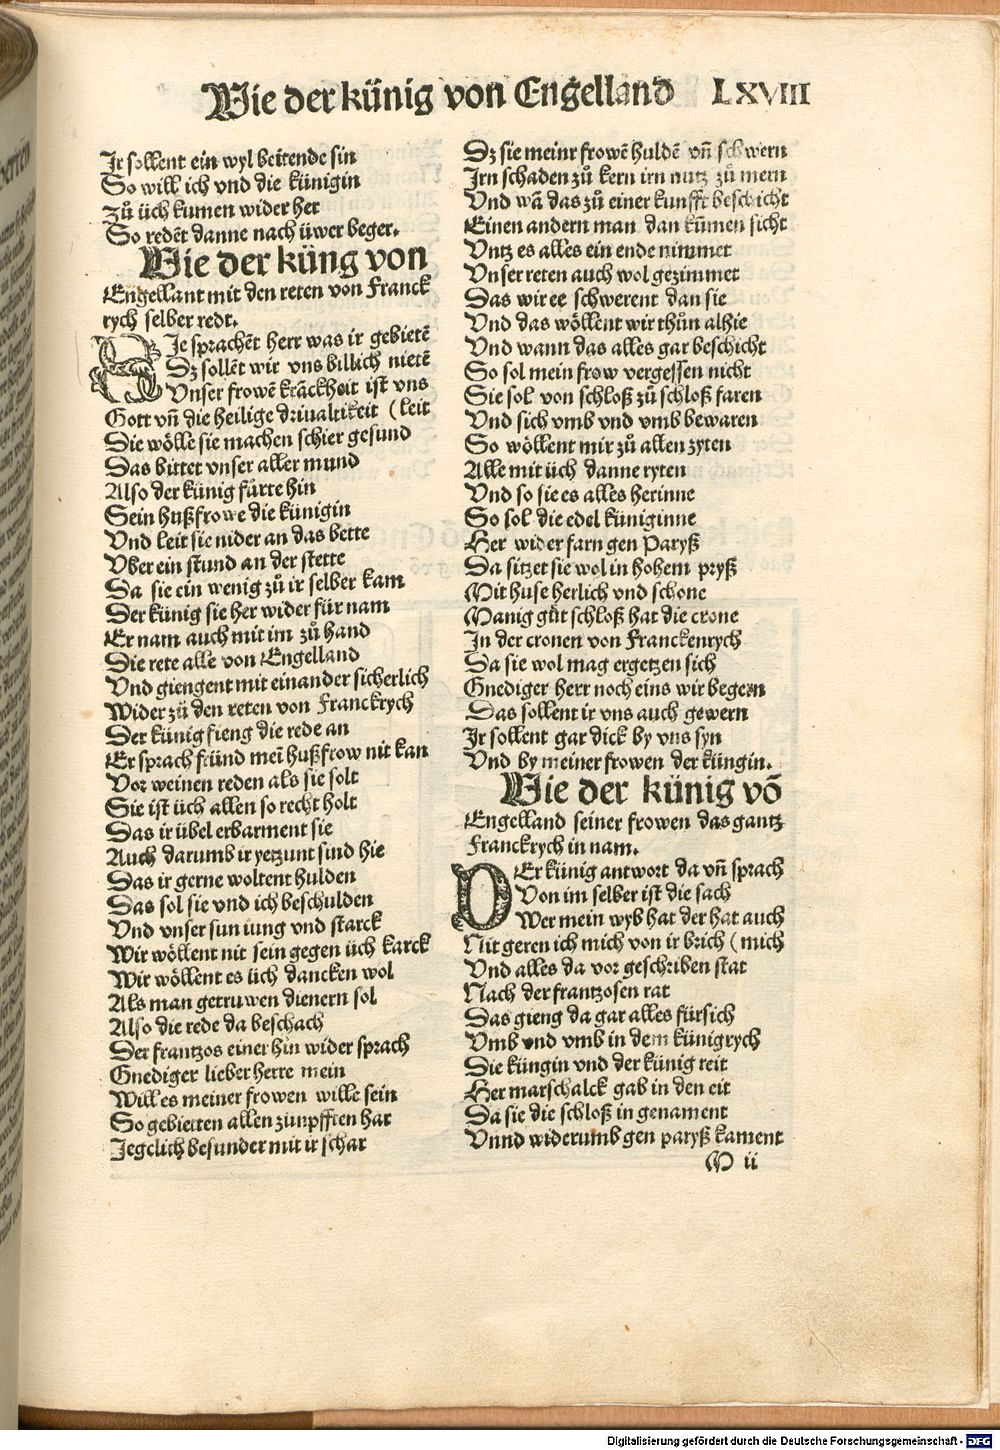 Wie der künig von Engelland LXVIII
Jr sollent ein wyl beitende sin
So will ich vnd die künigin
Zů üch kumen wider her
So redēt danne nach üwer beger.
Wie der küng von
Engellant mit den reten von Franck
rych selber redt.
SJe sprachēt herr was ir gebietē
Dz sollēt wir vns billich nietē
Vnser frowē krāckheit ist vns
Gott vn̄ die heilige driualtikeit (leit
Die wölle sie machen schier gesund
Das bittet vnser aller mund
Also der künig fürte hin
Sein hußfrowe die künigin
Vnd leit sie nider an das bette
Vber ein stund an der stette
Da sie ein wenig zů ir selber kam
Der künig sie her wider für nam
Er nam auch mit im zů hand
Die rete alle von Engelland
Vnd giengent mit einander sicherlich
Wider zů den reten von Franckrych
Der künig fieng die rede an
Er sprach fründ mei hußfrow nit kan
Vor weinen reden als sie solt
Sie ist üch allen so recht holt
Das ir übel erbarment sie
Auch darumb ir yetzunt sind hie
Das ir gerne woltent hulden
Das sol sie vnd ich beschulden
Vnd vnser sun iung vnd starck
Wir wöllent nit sein gegen üch karck
Wir wöllent es üch dancken wol
Als man getruwen dienern sol
Also die rede da beschach
Der frantzos einer hin wider sprach
Gnediger lieber herre mein
Will es meiner frowen wille sein
So gebietten allen zünpfften har
Jegclich besunder mit ir schar
Dz sie meinr frowē huldē vn̄ schwern
Irn schaden zů kern irn nutz zů mern
Vnd wā das zů einer kunfft beschicht
Einen andern man dan kümen sicht
Vntz es alles ein ende nimmet
Vnser reten auch wol gezimmet
Das wir ee schwerent dan sie
Vnd das wöllent wir thůn alhie
Vnd wann das alles gar beschicht
So sol mein frow vergessen nicht
Sie sol von schloß zů schloß faren
Vnd sich vmb vnd vmb bewaren
So wöllent mir zů allen zyten
Alle mit üch danne ryten
Vnd so sie es alles herinne
So sol die edel küniginne
Her wider farn gen Paryß
Da sitzet sie wol in hohem pryß
Mit huse herlich vnd schone
Manig gůt schloß hat die crone
In der cronen von Franckenrych
Da sie wol mag ergetzen sich
Gnediger herr noch eins wir begern
Das sollent ir vns auch gewern
Jr sollent gar dick by vns syn
Vnd by meiner frowen der küngin.
Wie der künig vō
Engelland seiner frowen das gantz
Franckrych in nam.
DEr künig antwort da vn̄ sprach
Von im selber ist die sach
Wer mein wyb hat der hat auch
Nit geren ich mich von ir brich (mich
Vnd alles da vor geschriben stat
Nach der frantzosen rat
Das gieng da gar alles fürsich
Vmb vnd vmb in dem künigrych
Die küngin vnd der künig reit
Her marschalck gab in den eit
Da sie die schloß in genament
Vnnd widerumb gen paryß kament
M ii
Digitalisierung gefördert durch die Deutsche Forschungsgemeinschaft - DFG